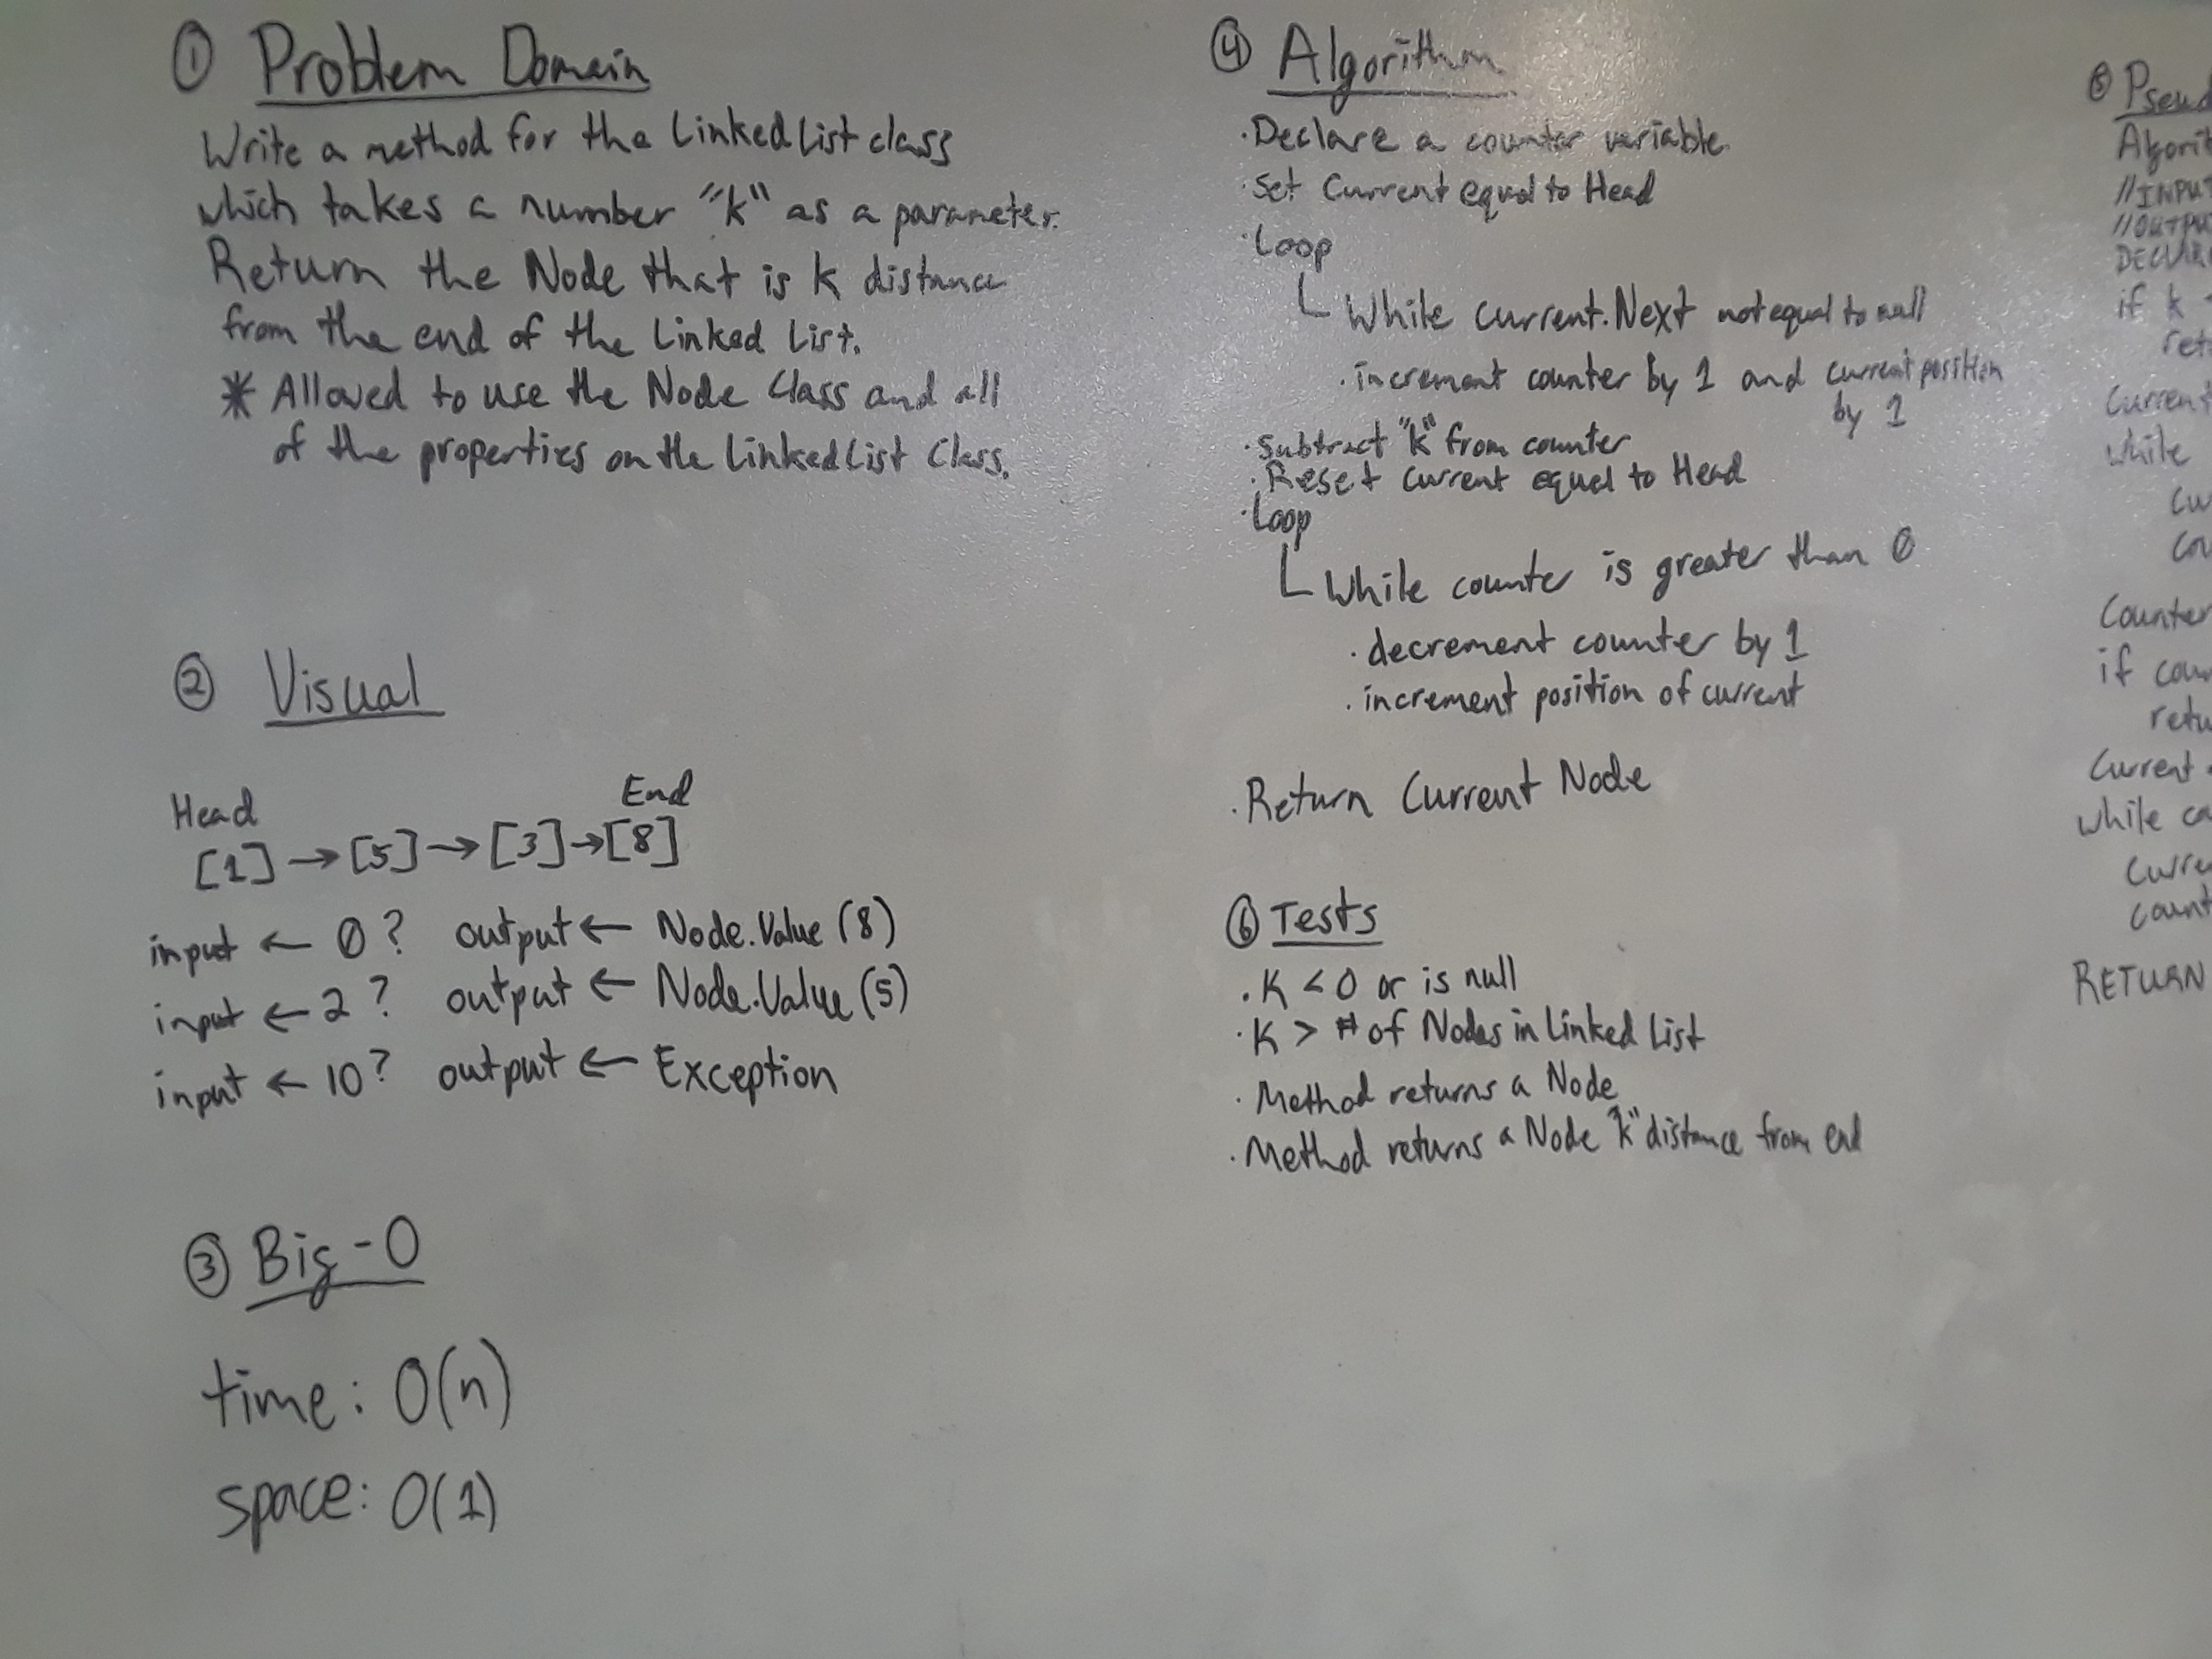 ① Problem Domain
Write a method for the Linked List class
which takes a number "k" as a parameter.
Return the Node that is k distance
from the end of the Linked List.
* Allowed to use the Node Class and all
of the properties on the Linked List Class.
② Visual
Head End
[1] → [5] → [3] → [8]
input ← 0? output ← Node.Value (8)
input ← 2? output ← Node.Value (5)
input ← 10? output ← Exception
③ Big-O
time: O(n)
space: O(1)
④ Algorithm
· Declare a counter variable
· Set Current equal to Head
· Loop
While current.Next not equal to null
· increment counter by 1 and current position
by 1
· Subtract "k" from counter
· Reset current equal to Head
· Loop
While counter is greater than 0
· decrement counter by 1
· increment position of current
· Return Current Node
⑥ Tests
· K < 0 or is null
· K > # of Nodes in Linked List
· Method returns a Node
· Method returns a Node "k" distance from end
⑤ Pseud
Algorit
//INPUT
//OUTPU
DECLAR
if k
ret
Current
while
cu
cou
Counter
if coun
retu
Current
while co
Curre
count
RETURN